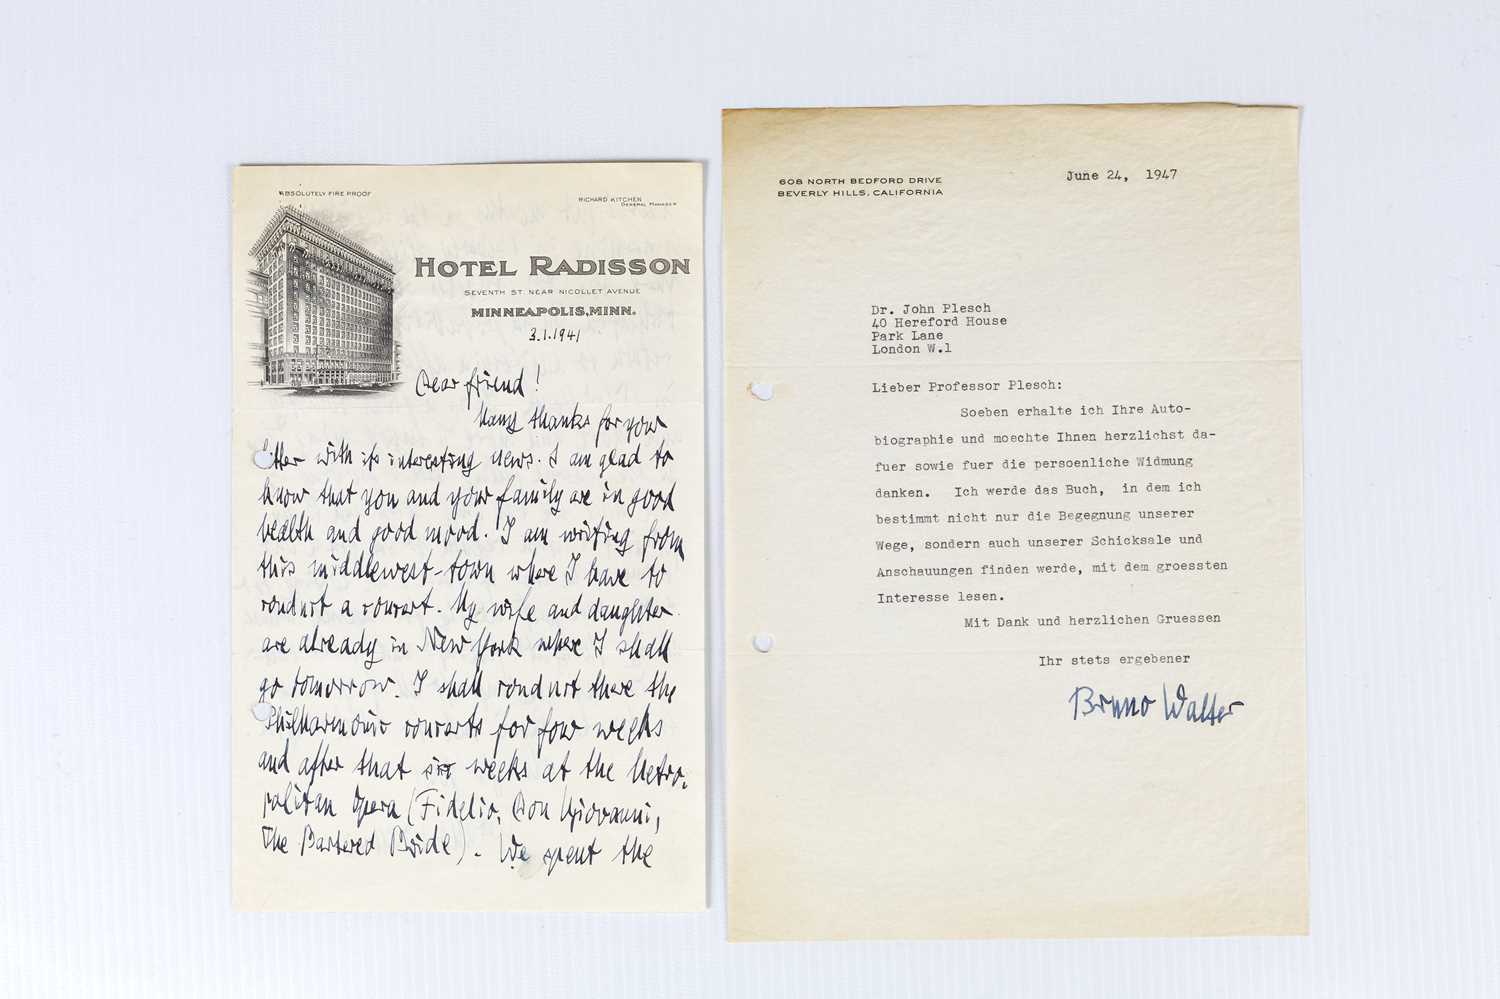 ABSOLUTELY FIRE PROOF
RICHARD KITCHEN
GENERAL MANAGER
HOTEL RADISSON
SEVENTH ST. NEAR NICOLLET AVENUE
MINNEAPOLIS, MINN.
3.1.1941
Dear friend!
Many thanks for your
letter with its interesting news. I am glad to
know that you and your family are in good
health and good mood. I am writing from
this middlewest-town where I have to
conduct a concert. My wife and daughter
are already in New York where I shall
go tomorrow. I shall conduct there the
Philharmonic concerts for four weeks
and after that six weeks at the Metro-
politan Opera (Fidelio, Don Giovanni,
The Bartered Bride). We spent the
608 NORTH BEDFORD DRIVE
BEVERLY HILLS, CALIFORNIA
June 24, 1947
Dr. John Plesch
40 Hereford House
Park Lane
London W.1
Lieber Professor Plesch:
Soeben erhalte ich Ihre Auto-
biographie und moechte Ihnen herzlichst da-
fuer sowie fuer die persoenliche Widmung
danken. Ich werde das Buch, in dem ich
bestimmt nicht nur die Begegnung unserer
Wege, sondern auch unserer Schicksale und
Anschauungen finden werde, mit dem groessten
Interesse lesen.
Mit Dank und herzlichen Gruessen
Ihr stets ergebener
Bruno Walter